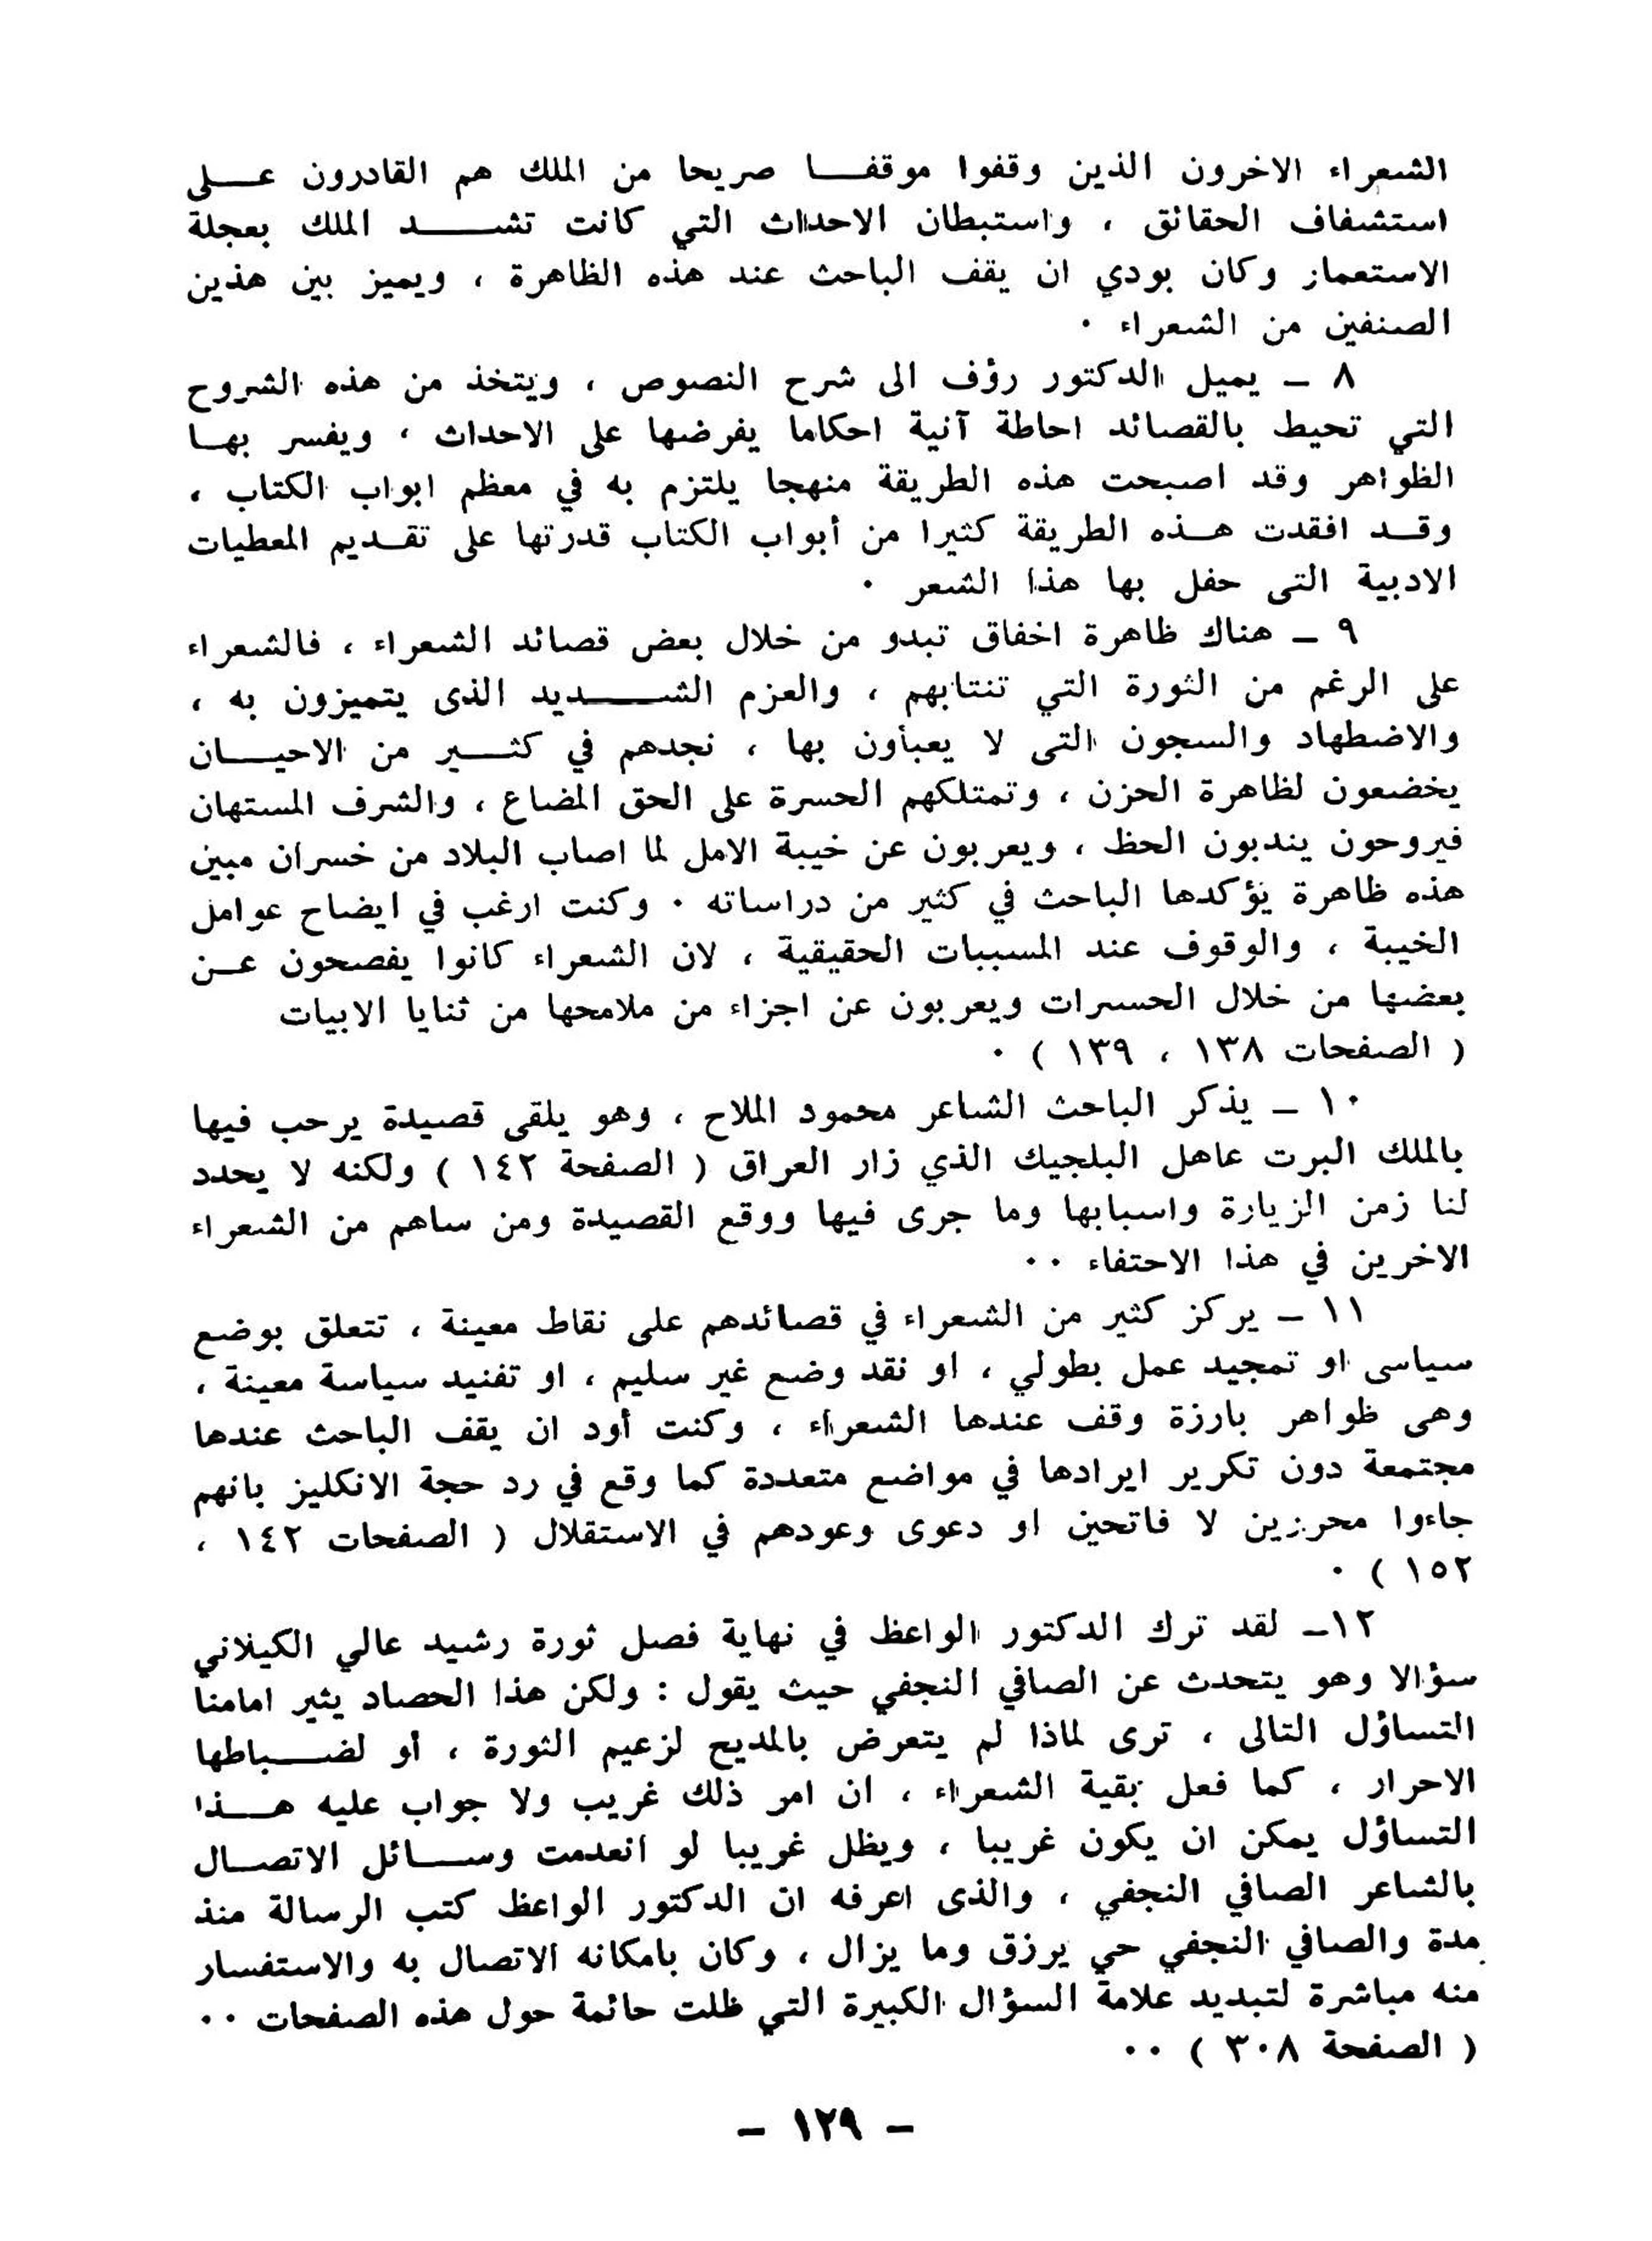 الشعراء الاخرون الذين وقفوا موقفا صريحا من الملك هم القادرون على
استشفاف الحقائق ، واستبطان الاحداث التي كانت تشد الملك بعجلة
الاستعمار وكان بودي ان يقف الباحث عند هذه الظاهرة ، ويميز بين هذين
الصنفين من الشعراء ٠
٨ ـ يميل الدكتور رؤف الى شرح النصوص ، ويتخذ من هذه الشروح
التي تحيط بالقصائد احاطة آنية احكاما يفرضها على الاحداث ، ويفسر بها
الظواهر وقد اصبحت هذه الطريقة منهجا يلتزم به في معظم ابواب الكتاب ،
وقد افقدت هذه الطريقة كثيرا من أبواب الكتاب قدرتها على تقديم المعطيات
الادبية التى حفل بها هذا الشعر ٠
٩ ـ هناك ظاهرة اخفاق تبدو من خلال بعض قصائد الشعراء ، فالشعراء
على الرغم من الثورة التي تنتابهم ، والعزم الشديد الذى يتميزون به ،
والاضطهاد والسجون التى لا يعبأون بها ، نجدهم في كثير من الاحيان
يخضعون لظاهرة الحزن ، وتمتلكهم الحسرة على الحق المضاع ، والشرف المستهان
فيروحون يندبون الحظ ، ويعربون عن خيبة الامل لما اصاب البلاد من خسران مبين
هذه ظاهرة يؤكدها الباحث في كثير من دراساته ٠ وكنت ارغب في ايضاح عوامل
الخيبة ، والوقوف عند المسببات الحقيقية ، لان الشعراء كانوا يفصحون عن
بعضها من خلال الحسرات ويعربون عن اجزاء من ملامحها من ثنايا الابيات
( الصفحات ١٣٨ ، ١٣٩ ) ٠
١٠ ـ يذكر الباحث الشاعر محمود الملاح ، وهو يلقى قصيدة يرحب فيها
بالملك البرت عاهل البلجيك الذي زار العراق ( الصفحة ١٤٢ ) ولكنه لا يحدد
لنا زمن الزيارة واسبابها وما جرى فيها ووقع القصيدة ومن ساهم من الشعراء
الاخرين في هذا الاحتفاء ٠٠
١١ ـ يركز كثير من الشعراء في قصائدهم على نقاط معينة ، تتعلق بوضع
سياسى او تمجيد عمل بطولي ، او نقد وضع غير سليم ، او تفنيد سياسة معينة ،
وهى ظواهر بارزة وقف عندها الشعراء ، وكنت أود ان يقف الباحث عندها
مجتمعة دون تكرير ايرادها في مواضع متعددة كما وقع في رد حجة الانكليز بانهم
جاءوا محررين لا فاتحين او دعوى وعودهم في الاستقلال ( الصفحات ١٤٢ ،
١٥٢ ) ٠
١٢ـ لقد ترك الدكتور الواعظ في نهاية فصل ثورة رشيد عالي الكيلاني
سؤالا وهو يتحدث عن الصافي النجفي حيث يقول : ولكن هذا الحصاد يثير امامنا
التساؤل التالى ، ترى لماذا لم يتعرض بالمديح لزعيم الثورة ، أو لضباطها
الاحرار ، كما فعل بقية الشعراء ، ان امر ذلك غريب ولا جواب عليه هذا
التساؤل يمكن ان يكون غريبا ، ويظل غريبا لو انعدمت وسائل الاتصال
بالشاعر الصافي النجفي ، والذى اعرفه ان الدكتور الواعظ كتب الرسالة منذ
مدة والصافي النجفي حي يرزق وما يزال ، وكان بامكانه الاتصال به والاستفسار
منه مباشرة لتبديد علامة السؤال الكبيرة التي ظلت حائمة حول هذه الصفحات ٠٠
( الصفحة ٣٠٨ ) ٠٠
ـ ١٢٩ ـ